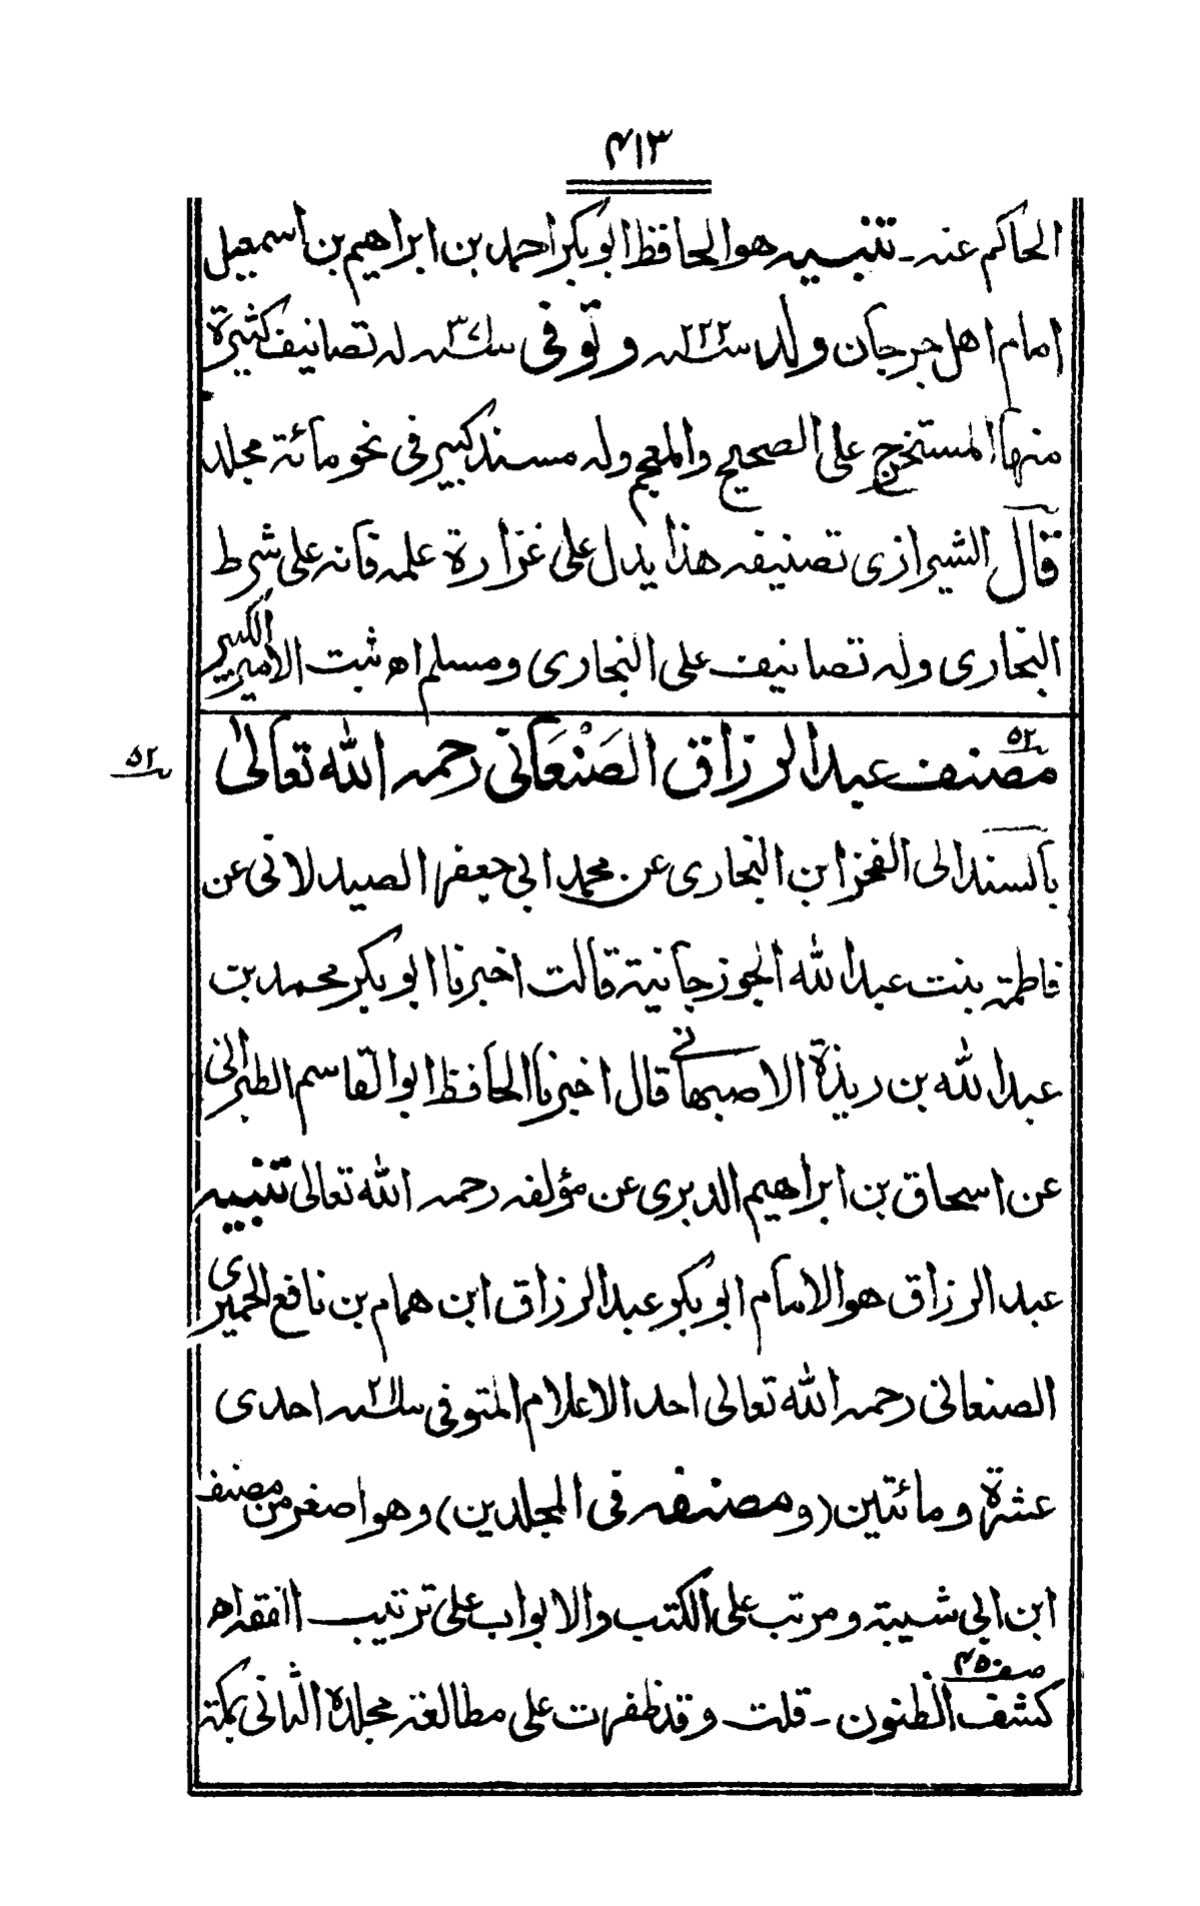 ۴۱۳
الحاكم عنه - تنبيه هو الحافظ ابو بكر احمد بن ابراهيم بن اسمعيل
امام اهل جرجان ولد سنه ٢٢٢ وتوفى سنه ٣٧١ له تصانيف كثيرة
منها المستخرج على الصحيح والمعجم وله مسند كبير فى نحو مائة مجلد
قال الشيرازى تصنيفه هذا يدل على غزارة علمه فانه على شرط
البخارى وله تصانيف على البخارى ومسلم اه ثبت الامير الكبير
۵۲ مصنف عبد الرزاق الصَنْعَانى رحمه الله تعالىٰ ۵۲
بالسند الى الفخر ابن البخارى عن محمد ابى جعفر الصيدلانى عن
فاطمة بنت عبد الله الجوزجانية قالت اخبرنا ابو بكر محمد بن
عبد الله بن ريذة الاصبهانى قال اخبرنا الحافظ ابو القاسم الطبرانى
عن اسحاق بن ابراهيم الدبرى عن مؤلفه رحمه الله تعالى تنبيه
عبد الرزاق هو الامام ابو بكر عبد الرزاق ابن همام بن نافع الحميرى
الصنعانى رحمه الله تعالى احد الاعلام المتوفى سنه ٢١١ احدى
عشرة ومائتين (ومصنفه فى المجلدين) وهو اصغر من مصنف
ابن ابى شيبة ومرتب على الكتب والابواب على ترتيب الفقه اه
كشف الظنون صف ۴۵۰ - قلت وقد ظفرت على مطالعة مجلدة الثانى بمكة